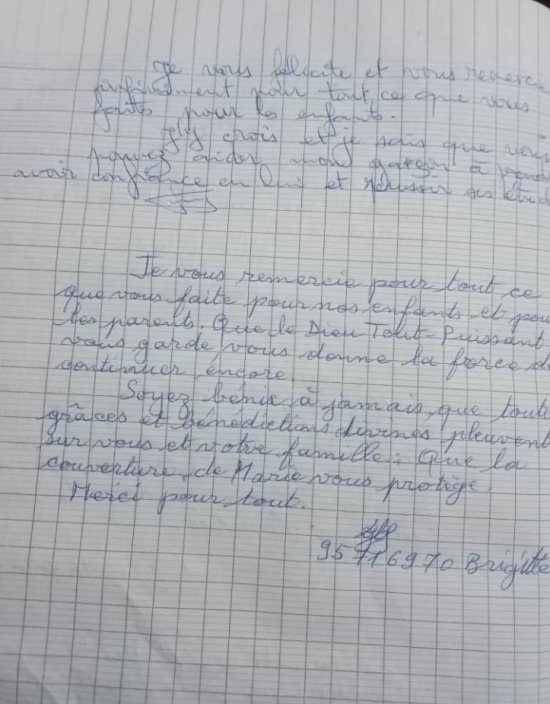 Je vous félicite et vous remercie
infiniment pour tout ce que vous
faits pour les enfants.
J'y crois et je sais que vous
pouvez aider mon garçon à
avoir confiance en lui et réussir ses
Je vous remercie pour tout ce
que vous faite pour nos enfants et pour
les parents. Que le Dieu Tout-Puissant
vous garde, vous donne la force de
continuer encore.
Soyez bénis à jamais, que toute
grâces et bénédictions divines pleuvent
sur vous et votre famille. Que la
couverture de Marie vous protège.
Merci pour tout.
95716970 Brigitte